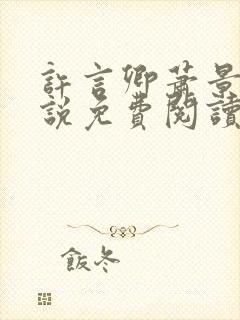 許言卿蕭景
說免費閱讀
飯冬